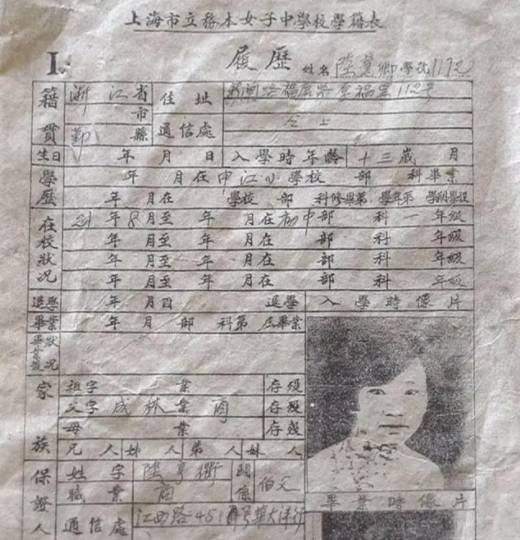 上海市立務本女子中學校學籍表
I. 履歷 姓名 陸慧卿 學號 1192
籍貫 浙江省 市 鄞縣 住址 新聞路 路 福里112号
通信處 仝上
生日 年 月 日 入學時年齡 十三歲 月
學歷 年 月在 中江小學校 部 科畢業
年 月在 學校 部 科修畢第 學年第 學期學程
在校狀況 21年8月至 年 月在初中部 科 一 年級
年 月至 年 月在 部 科 年級
年 月至 年 月在 部 科 年級
年 月至 年 月在 部 科 年級
退學 年 月因 退學 入學時像片
畢業 年 月 部 科第 屆畢業
畢業後狀況
家族 祖 字 業 存歿
父 字 成林 業 商 存歿
母 業 存歿
兄 人 姊 人 弟 人 妹 人
保證人 姓字 陸亨衢 關係 伯父
職業 商
畢業時像片
通信處 江西路451 華大洋行